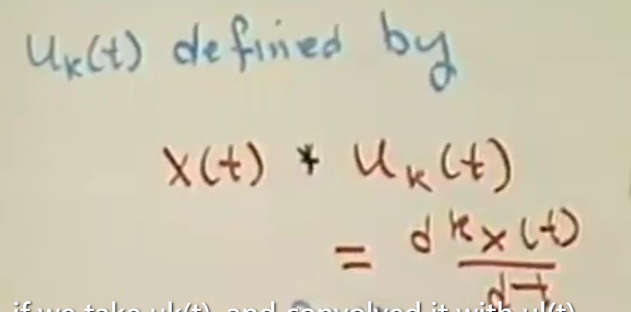 u_k(t) defined by
x(t) * u_k(t)
= d^k x(t)
dt
if we take uk(t), and convolved it with ul(t)